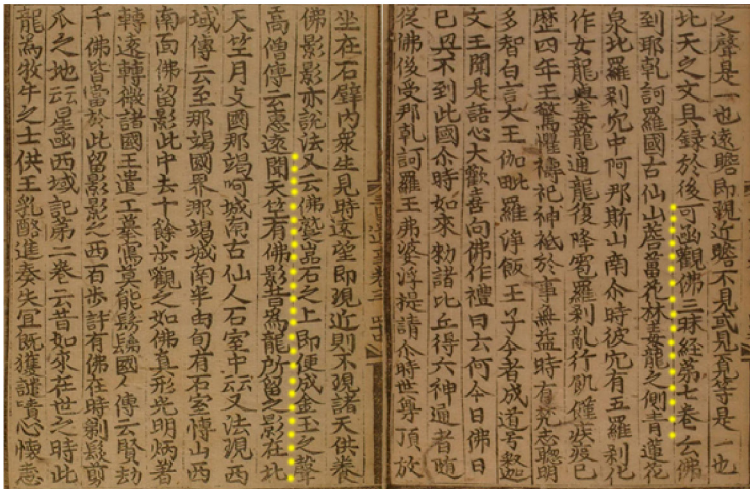 之聲是一也遠瞻即現近瞻不見或見覔等是一也
此天之文具録於後可函觀佛三昧経第七卷云佛
到耶乾訶羅國古仙山薝蔔花林毒龍之側青蓮花
泉北羅刹穴中阿那斯山南尒時彼穴有五羅刹化
作女龍與毒龍通龍復降雹羅刹亂行飢饉疾疫已
歷四年王驚懼禱祀神祇於事無益時有梵志聰明
多智白言大王伽毗羅淨飯王子今者成道号釋迦
文王聞是語心大歡喜向佛作禮曰云何今日佛日
已興不到此國尒時如來勑諸比丘得六神通者隨
從佛後受那乾訶羅王弗婆浮提請尒時世尊頂放
坐在石壁内衆生見時遠望即現近則不現諸天供養
佛影影亦說法又云佛蹙嵓石之上即便成金玉之聲
高僧傳云惠遠聞天竺有佛影昔爲龍所留之影在北
天竺月支國那竭呵城南古仙人石室中云云又法現西
域傳云至那竭國界那竭城南半由旬有石室博山西
南面佛留影此中去十餘步觀之如佛真形光明炳著
轉遠轉微諸國王遣工摹寫莫能髣髴國人傳云賢劫
千佛皆當於此留影影之西百步許有佛在時剃髮剪
爪之地云云星函西域記第二卷云昔如來在世之時此
龍爲牧牛之士供王乳酪進奏失宜既獲譴嘖心懷恚